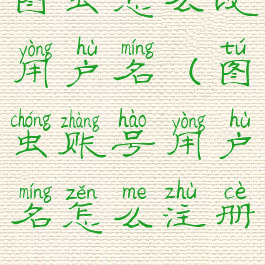 图虫怎么改
yòng hù míng tú
用户名(图
chóng zhàng hào yòng hù
虫账号用户
míng zěn me zhù cè
名怎么注册